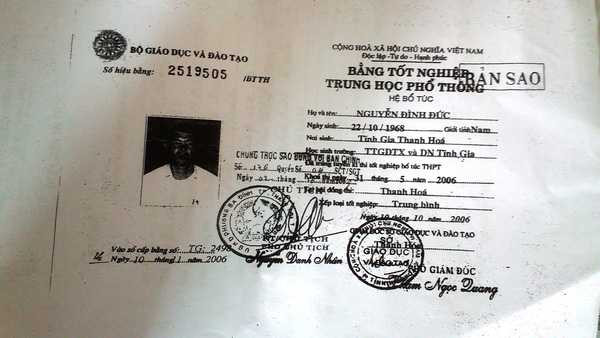 BỘ GIÁO DỤC VÀ ĐÀO TẠO
Số hiệu bằng: 2519505 /BTTH
CỘNG HOÀ XÃ HỘI CHỦ NGHĨA VIỆT NAM
Độc lập - Tự do - Hạnh phúc
BẰNG TỐT NGHIỆP
TRUNG HỌC PHỔ THÔNG
BẢN SAO
HỆ BỔ TÚC
Họ và tên: NGUYỄN ĐÌNH ĐỨC
Ngày sinh: 22 / 10 / 1968 Giới tính: Nam
Nơi sinh: Tĩnh Gia Thanh Hoá
Học sinh trường: TTGDTX và DN Tĩnh Gia
Đã trúng tuyển kì thi tốt nghiệp bổ túc THPT
Khoá thi ngày 31 tháng 5 năm 2006
Hội đồng thi: Thanh Hoá
Xếp loại tốt nghiệp: Trung bình
Ngày 10 tháng 10 năm 2006
GIÁM ĐỐC SỞ GIÁO DỤC VÀ ĐÀO TẠO
Thanh Hóa
SỞ
GIÁO DỤC
VÀ ĐÀO TẠO
PHÓ GIÁM ĐỐC
Phạm Ngọc Quang
CHỨNG THỰC SAO ĐÚNG VỚI BẢN CHÍNH
SCT/SGT
CHỦ TỊCH
PHÓ CHỦ TỊCH
Nguyễn Danh Nhân
Vào sổ cấp bằng số: TG:
Ngày 10 tháng 11 năm 2006